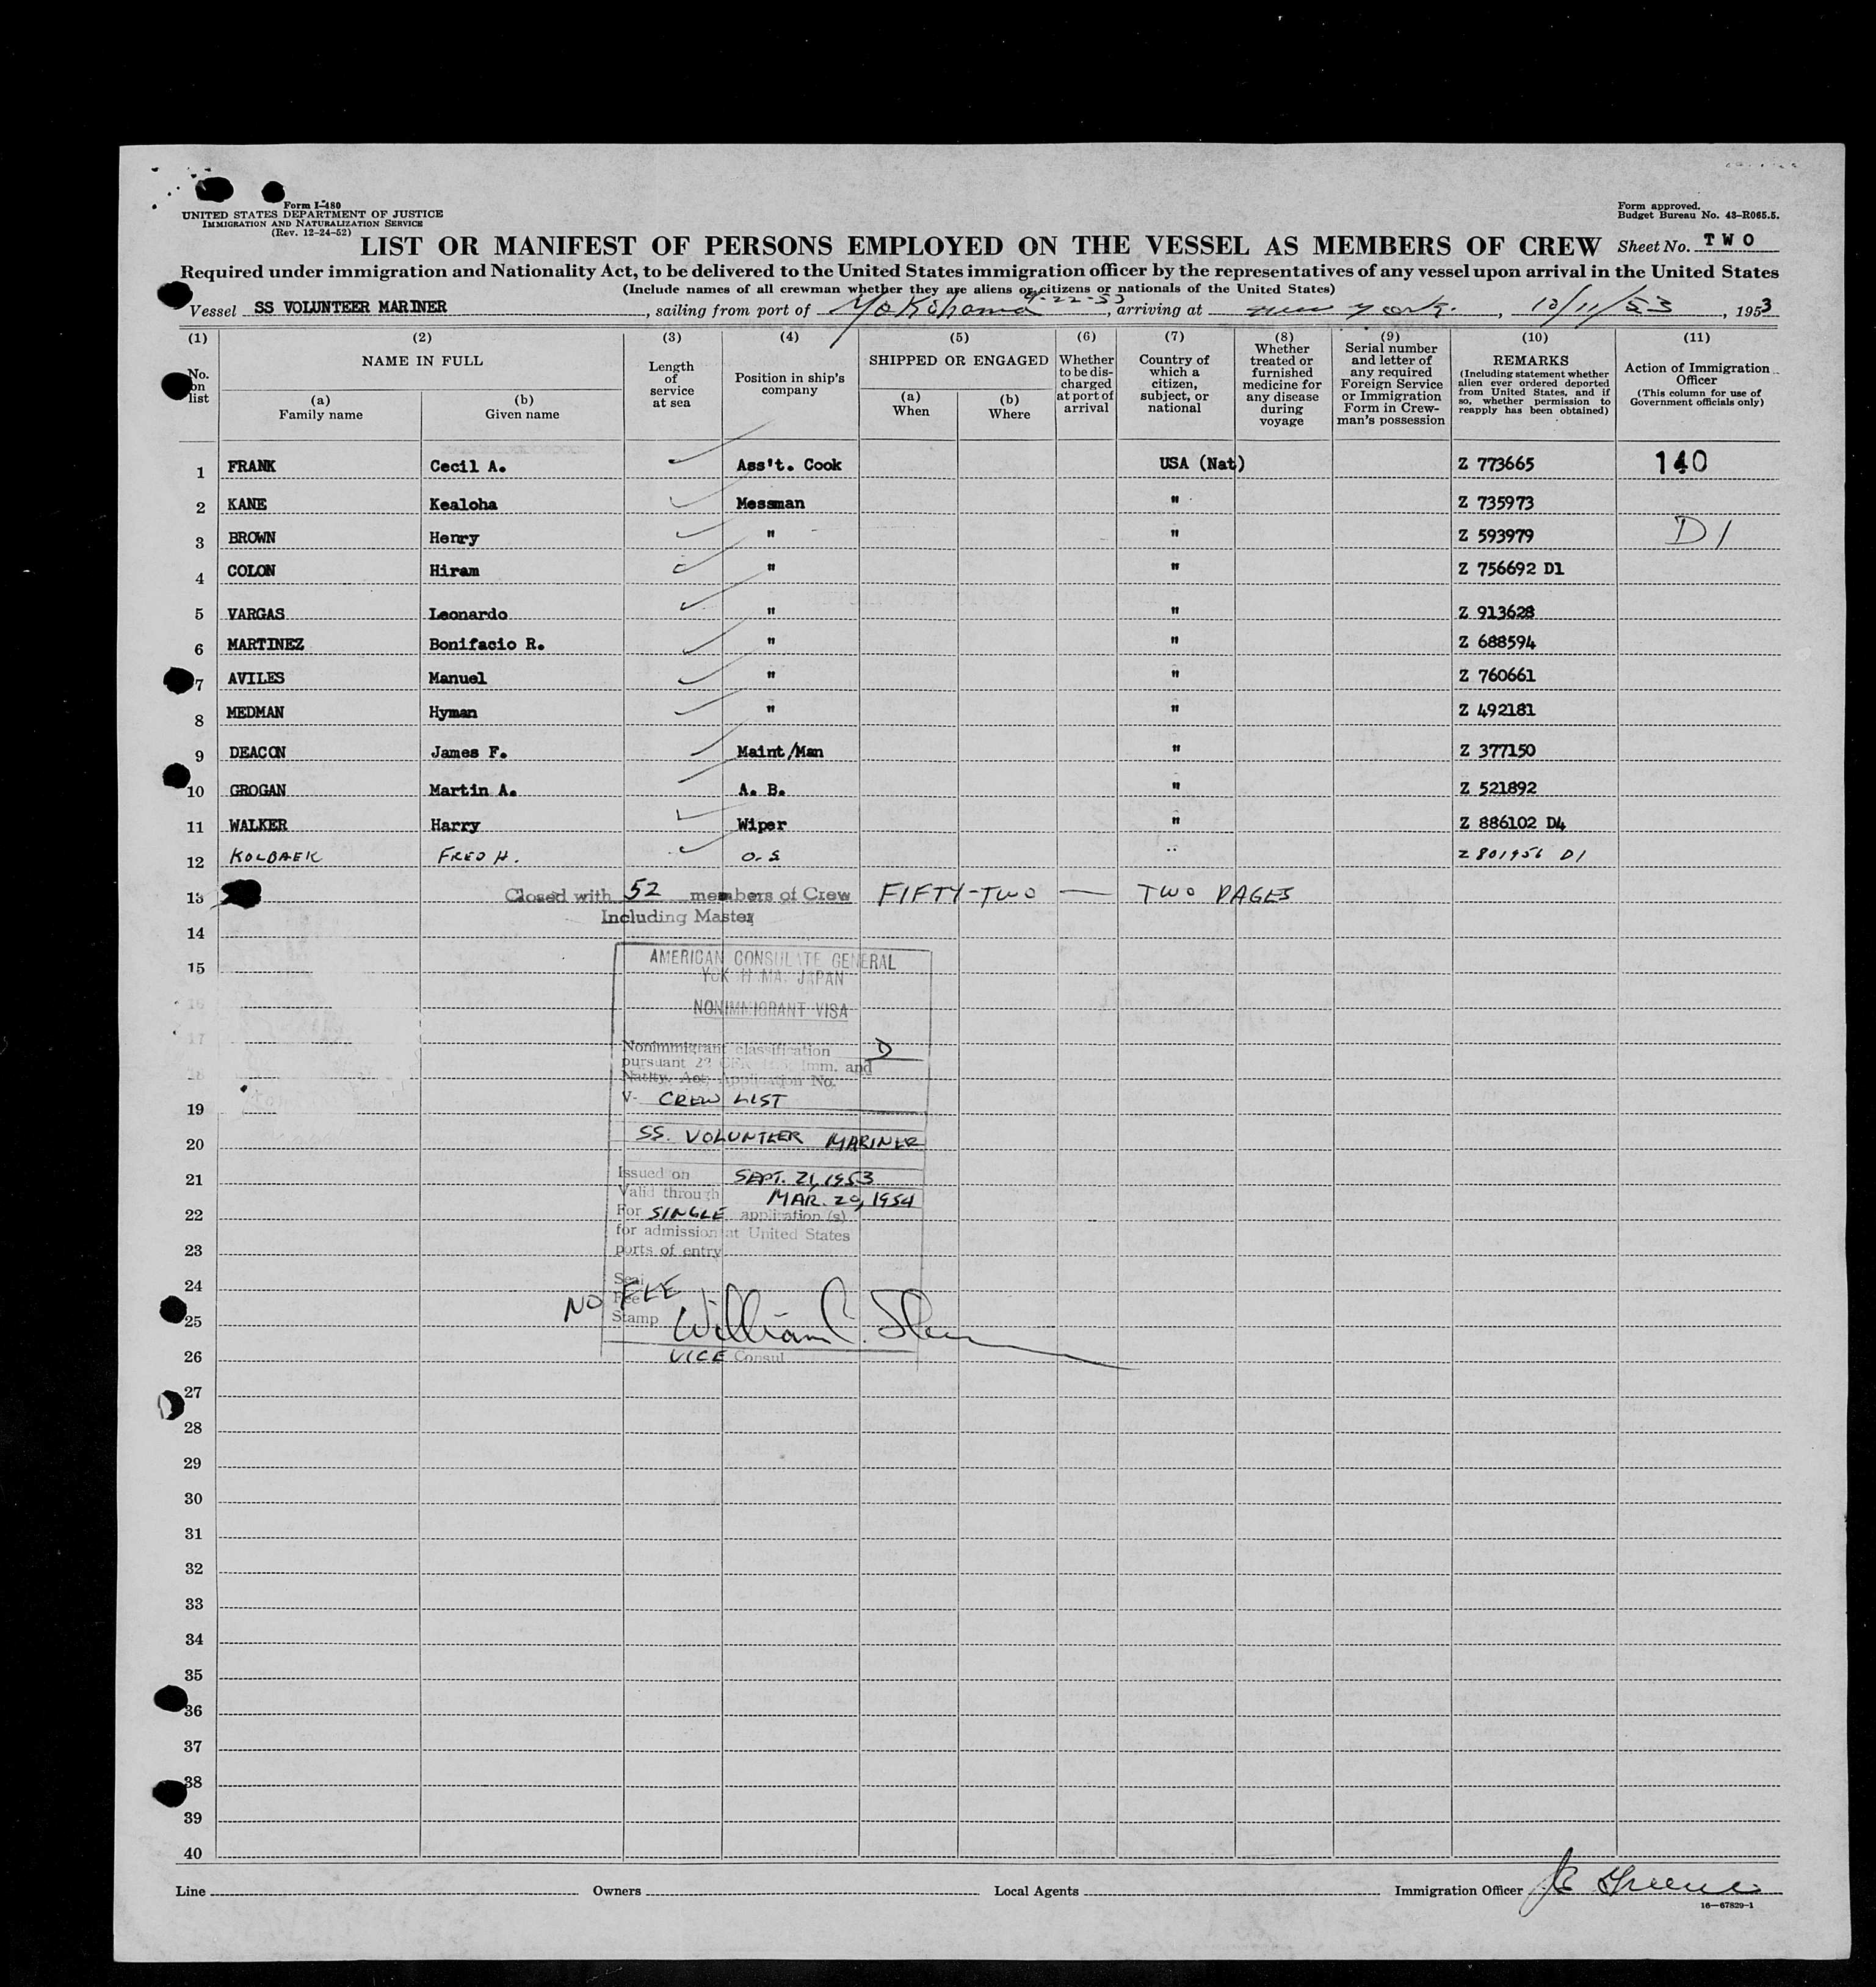 Form I-480
UNITED STATES DEPARTMENT OF JUSTICE
IMMIGRATION AND NATURALIZATION SERVICE
(Rev. 12-24-52)
Form approved.
Budget Bureau No. 43-R065.5.
LIST OR MANIFEST OF PERSONS EMPLOYED ON THE VESSEL AS MEMBERS OF CREW Sheet No. TWO
Required under immigration and Nationality Act, to be delivered to the United States immigration officer by the representatives of any vessel upon arrival in the United States
(Include names of all crewman whether they are aliens or citizens or nationals of the United States)
9-22-53
Vessel SS VOLUNTEER MARINER, sailing from port of Yokohama, arriving at New York, 10/11/53, 1953
(1) No. on list
(2) NAME IN FULL
(a) Family name
(b) Given name
(3) Length of service at sea
(4) Position in ship's company
(5) SHIPPED OR ENGAGED
(a) When
(b) Where
(6) Whether to be discharged at port of arrival
(7) Country of which a citizen, subject, or national
(8) Whether treated or furnished medicine for any disease during voyage
(9) Serial number and letter of any required Foreign Service or Immigration Form in Crewman's possession
(10) REMARKS (Including statement whether alien ever ordered deported from United States, and if so, whether permission to reapply has been obtained)
(11) Action of Immigration Officer (This column for use of Government officials only)
1 FRANK Cecil A. Ass't. Cook USA (Nat) Z 773665 140
2 KANE Kealoha Messman " Z 735973
3 BROWN Henry " " Z 593979 D1
4 COLON Hiram " " Z 756692 D1
5 VARGAS Leonardo " " Z 913628
6 MARTINEZ Bonifacio R. " " Z 688594
7 AVILES Manuel " " Z 760661
8 MEDMAN Hyman " " Z 492181
9 DEACON James F. Maint/Man " Z 377150
10 GROGAN Martin A. A. B. " Z 521892
11 WALKER Harry Wiper " Z 886102 D4
12 KOLBAEK FRED H. O.S " Z 801956 D1
13 Closed with 52 members of Crew FIFTY-TWO — TWO PAGES
Including Master
14
AMERICAN CONSULATE GENERAL
15
YOKOHAMA, JAPAN
16
NONIMMIGRANT VISA
17
Nonimmigrant classification D
pursuant 22 CFR Imm. and
18
Natlty. Act; Application No.
V- CREW LIST
19
SS. VOLUNTEER MARINER
20
Issued on SEPT. 21, 1953
21
Valid through MAR. 20, 1954
For SINGLE application(s)
22
for admission at United States
ports of entry
23
Seal
24
NO FEE
Fee
Stamp William C.
25
VICE Consul
26
27
28
29
30
31
32
33
34
35
36
37
38
39
40
Line Owners Local Agents Immigration Officer J Greene
16—67829-1